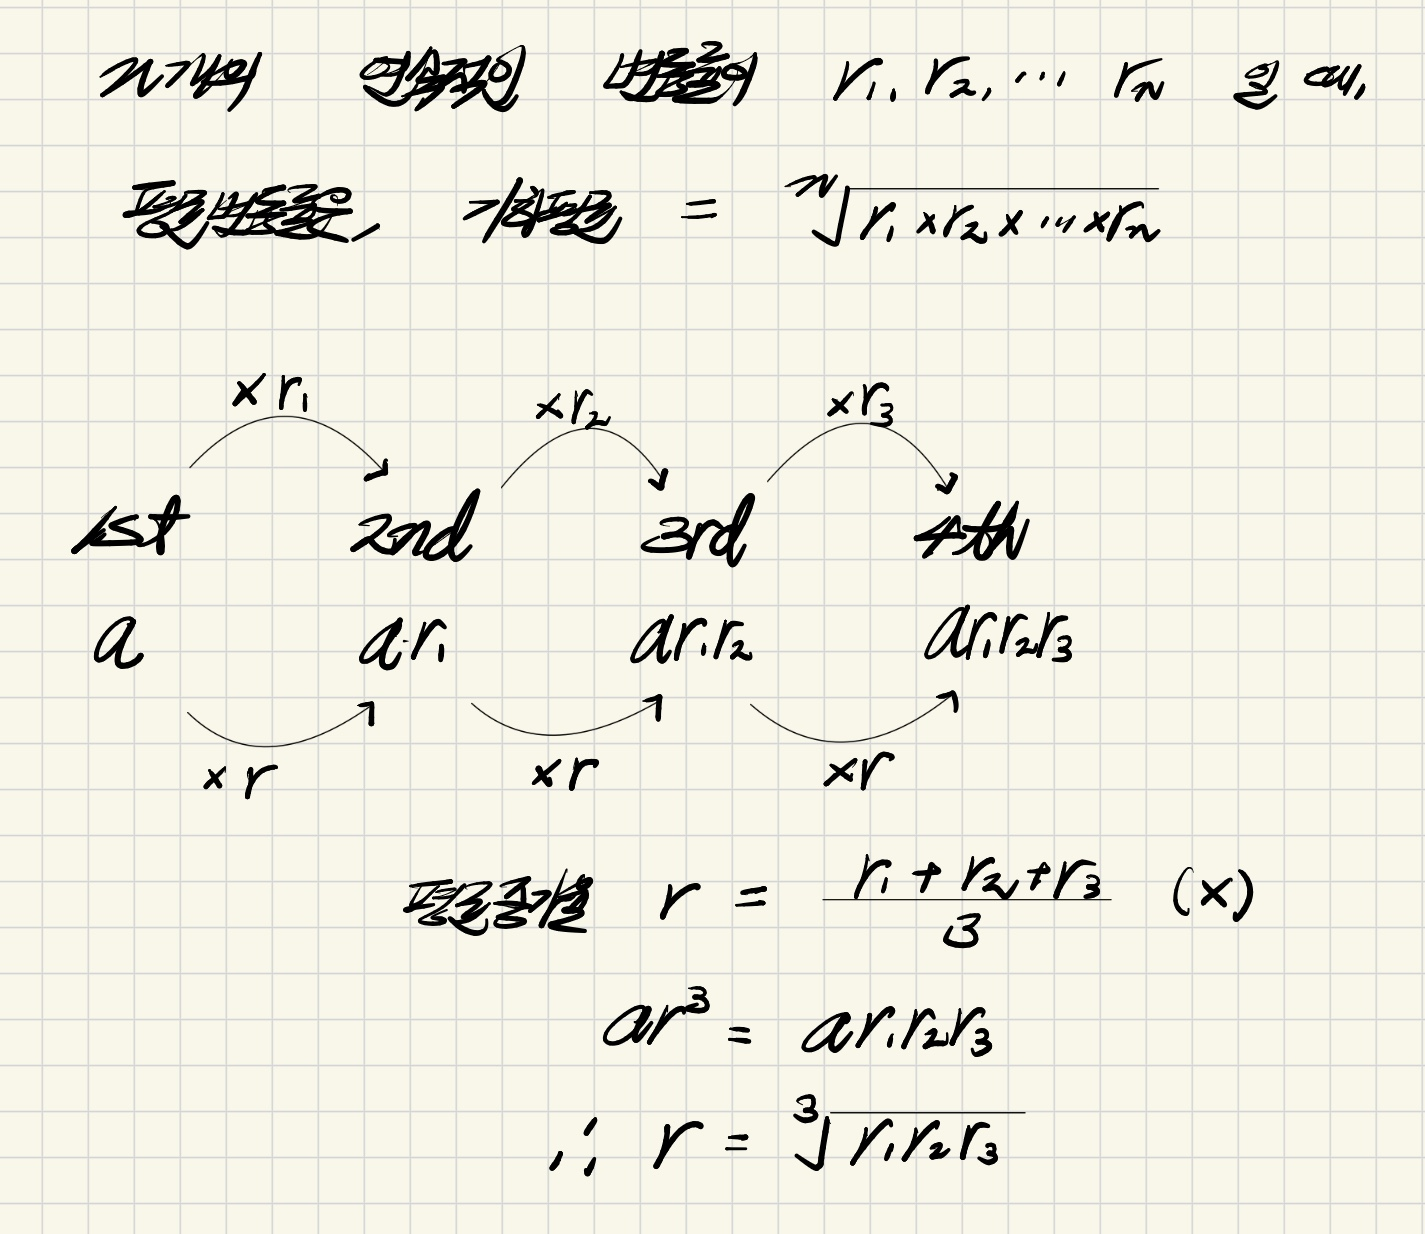 n개의 연속적 변동률이 r₁, r₂, ... rₙ 일 때,
평균변동률, 기하평균 = ⁿ√(r₁ × r₂ × ... × rₙ)
×r₁ ×r₂ ×r₃
1st 2nd 3rd 4th
a a·r₁ ar₁r₂ ar₁r₂r₃
×r ×r ×r
평균증가율 r = (r₁ + r₂ + r₃)/3 (×)
ar³ = ar₁r₂r₃
∴ r = ³√(r₁r₂r₃)